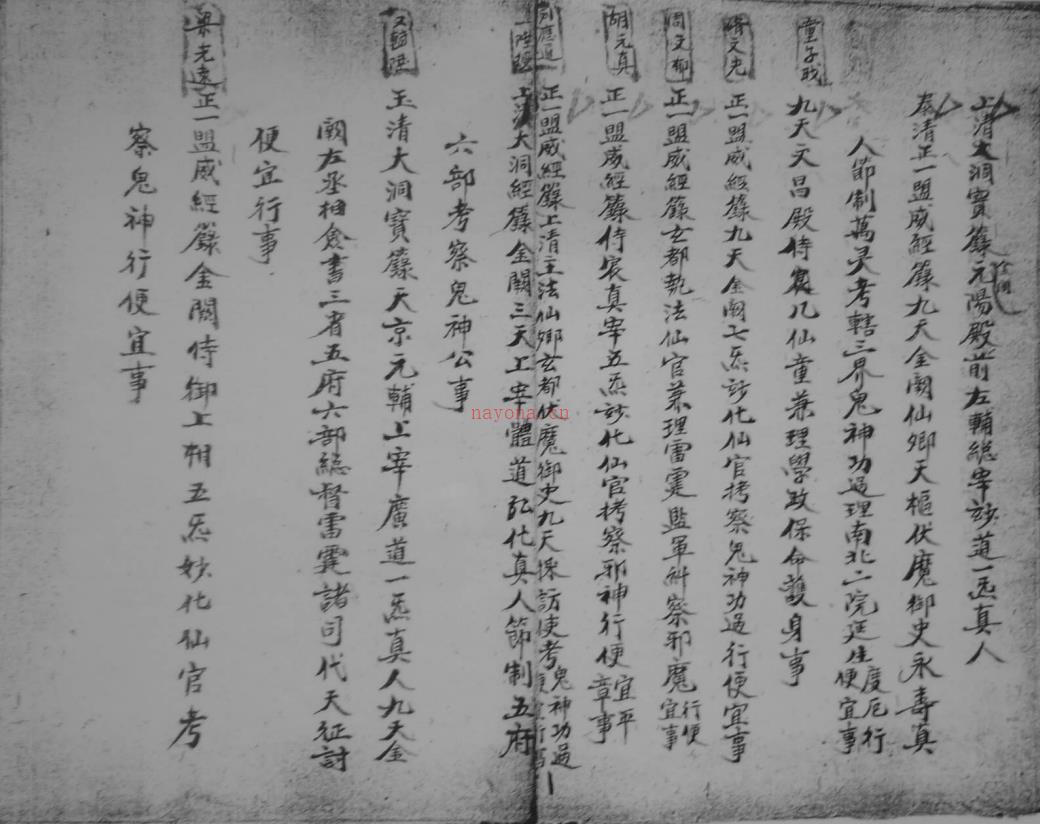 上清大洞寶籙元陽殿前左輔總宰妙道一炁真人
泰清正一盟威經籙九天金闕仙卿天樞伏魔御史永壽真
人節制萬灵考轄三界鬼神功過理南北二院延生度厄行便宜事
童子戏
九天文昌殿侍宸八仙童兼理學政保命護身事
文光
正一盟威經籙九天金闕七炁妙化仙官拷察鬼神功過行便宜事
周文郁
正一盟威經籙玄都執法仙官兼理雷霆監軍糾察邪魔行便宜事
胡元真
正一盟威經籙侍宸真宰五炁妙化仙官拷察邪神行便宜平章事
應道
正一盟威經籙上清主法仙卿玄都伏魔御史九天採訪使考鬼神功過
上清大洞經籙金闕三天上宰體道弘化真人節制五府
六部考察鬼神公事
玉清大洞寶籙天京元輔上宰廣道一炁真人九天金
闕左丞相僉書三省五府六部總督雷霆諸司代天征討
便宜行事
梁光遠
正一盟威經籙金闕侍御上相五炁妙化仙官考
察鬼神行便宜事
nayona.cn